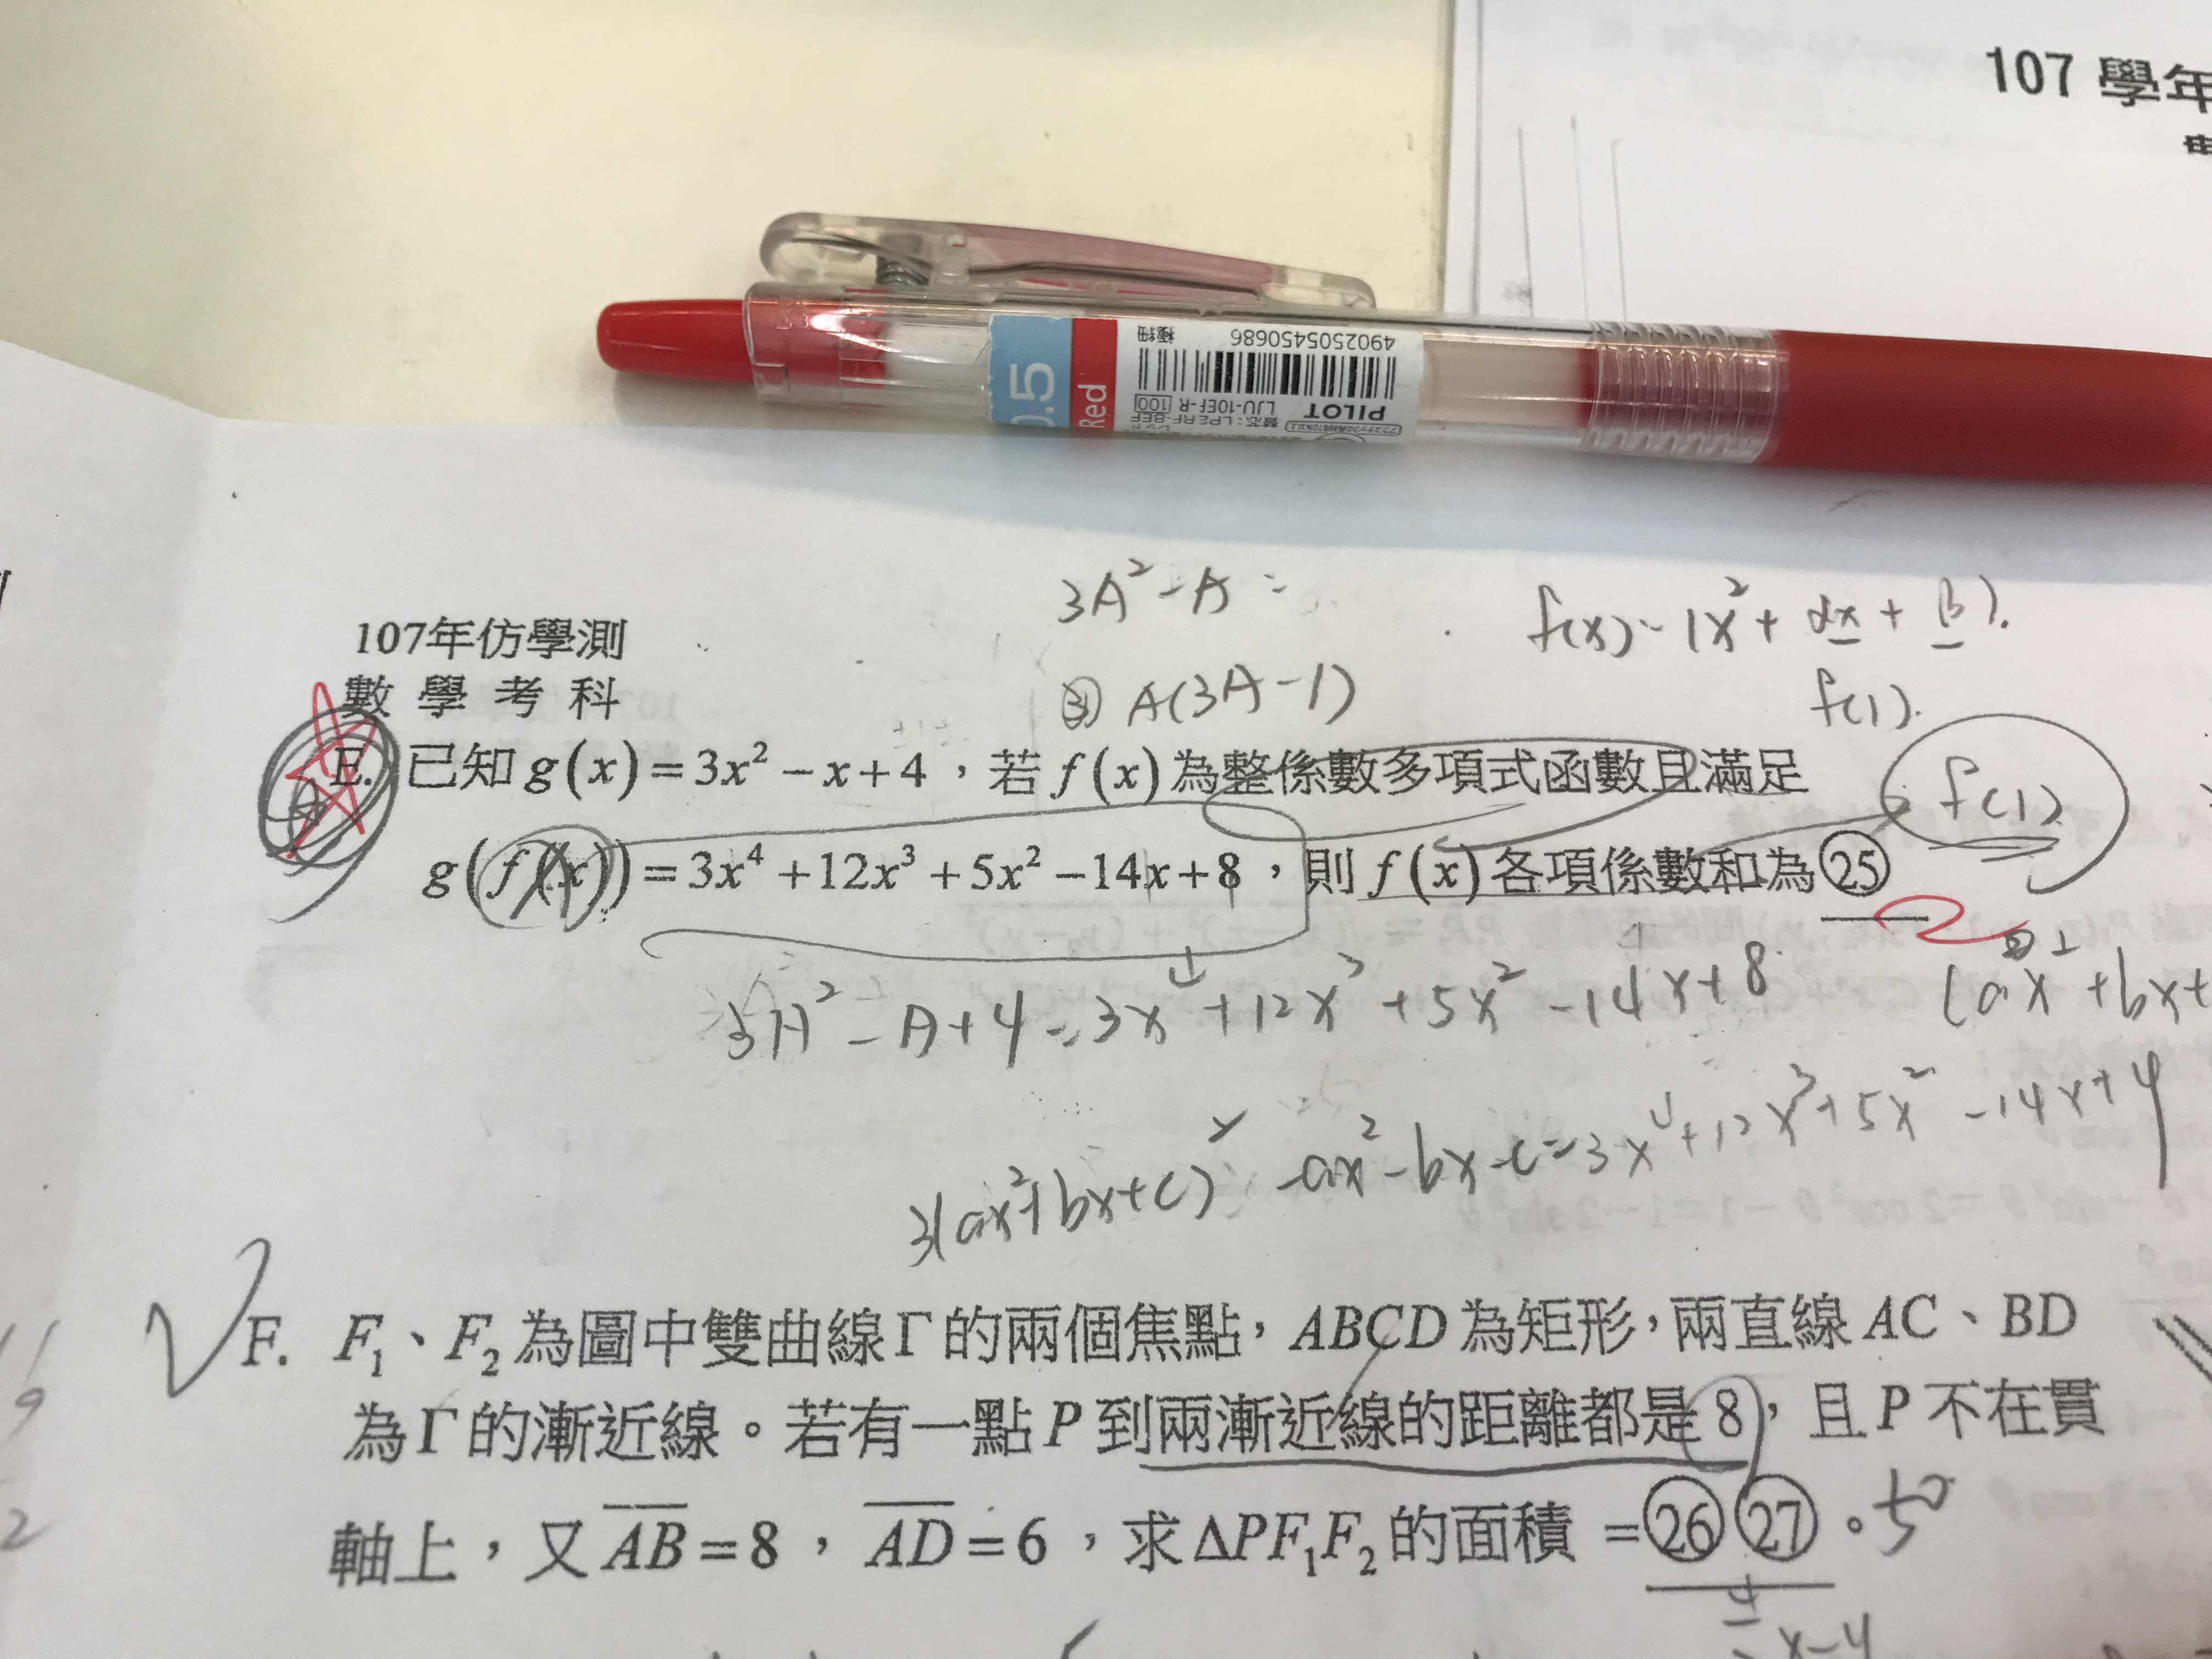 107 學年
4902505450686
極細
0.5
Red
PILOT
LJU-10EF-R 100
替芯:LP2RF-8EF
107年仿學測
數學考科
3A² - A =
f(x) = 1x² + αx + β).
③ A(3A-1)
f(1).
E. 已知 g(x) = 3x² − x + 4,若 f(x) 為整係數多項式函數且滿足
f(1)
g(f(x)) = 3x⁴ + 12x³ + 5x² − 14x + 8,則 f(x) 各項係數和為 ㉕
3A² - A + 4 = 3x⁴ + 12x³ + 5x² - 14x + 8
(ax² + bx +
3(ax² + bx + c)² - ax² - bx - c = 3x⁴ + 12x³ + 5x² - 14x + 4
F. F₁、F₂ 為圖中雙曲線 Γ 的兩個焦點,ABCD 為矩形,兩直線 AC、BD
為 Γ 的漸近線。若有一點 P 到兩漸近線的距離都是 8,且 P 不在貫
軸上,又 AB = 8,AD = 6,求 ΔPF₁F₂ 的面積 = ㉖㉗。50
x-4